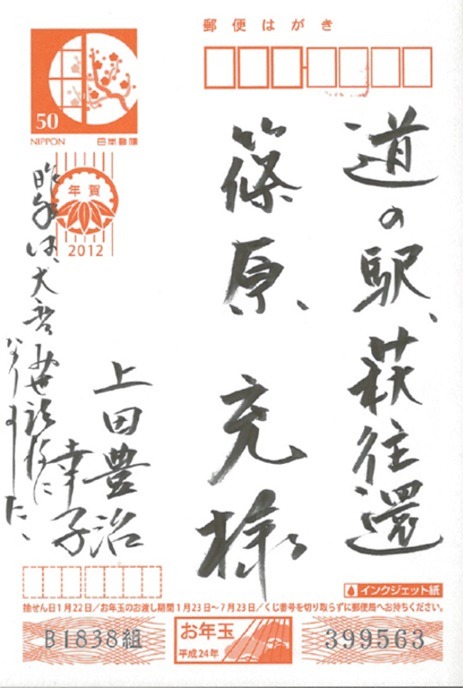 郵便はがき
50
NIPPON 日本郵便
年賀
2012
道の駅、萩往還
篠原、充様
昨年は、大変お世話様に
なりました、
上田豊治
幸子
インクジェット紙
抽せん日1月22日／お年玉のお渡し期間1月23日〜7月23日／くじ番号を切り取らずに郵便局へお持ちください。
B1838組
お年玉
平成24年
399563